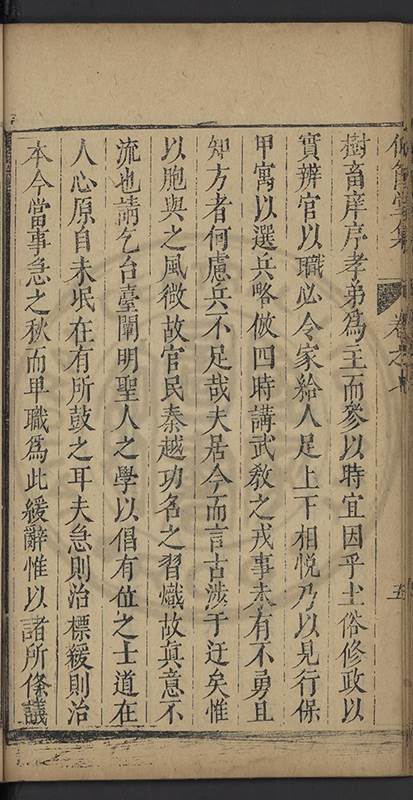 樹畜庠序孝弟為主而參以時宜因乎土俗修政以
實辨官以職必令家給人足上下相悅乃以見行保
甲寓以選兵略倣四時講武教之戎事未有不勇且
知方者何慮兵不足哉夫居今而言古涉于迂矣惟
以胞與之風微故官民秦越功名之習熾故真意不
流也請乞台臺闡明聖人之學以倡有位之士道在
人心原自未泯在有所鼓之耳夫急則治標緩則治
本今當事急之秋而卑職為此緩辭惟以諸所條議